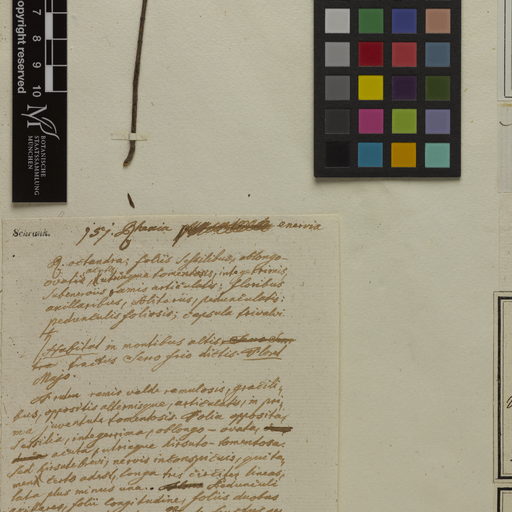 7
8
9
10
copyright reserved
BOTANISCHE
STAATSSAMMLUNG
MÜNCHEN
Schrank.
151. enervis
B. octandra; foliis sessilibus, oblongo-
ovatis, utrinque tomentosis, integerrimis,
subenerviis; ramis articulatis; floribus
axillaribus, solitariis, pedunculatis:
pedunculis foliosis; capsula trivalvi
Habitat in montibus altis
tractus Serro frio dictis. Floret
Majo.
ramis valde ramulosis, gracili-
bus, oppositis alternisque, articulatis, in pri-
ma juventute tomentosis. Folia opposita,
sessilia, integerrima, oblongo-ovata,
acuta, utrinque hirsuto-tomentosa.
sed hirsutie brevi; nervis inconspicuis, quita-
men certo adest, longa tres circiter lineas,
lata plus minus una. Pedunculi
axillares, folii longitudine, foliis duobus